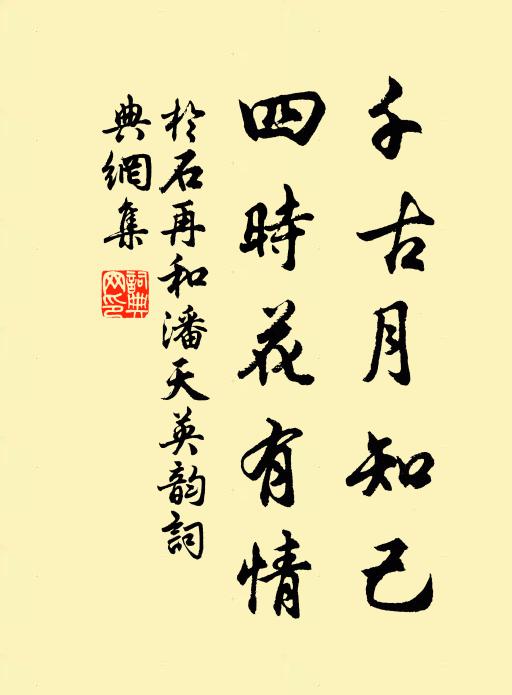 千古月知己
四時花有情
於石再和潘天英韵詞
典網集
詞典網印